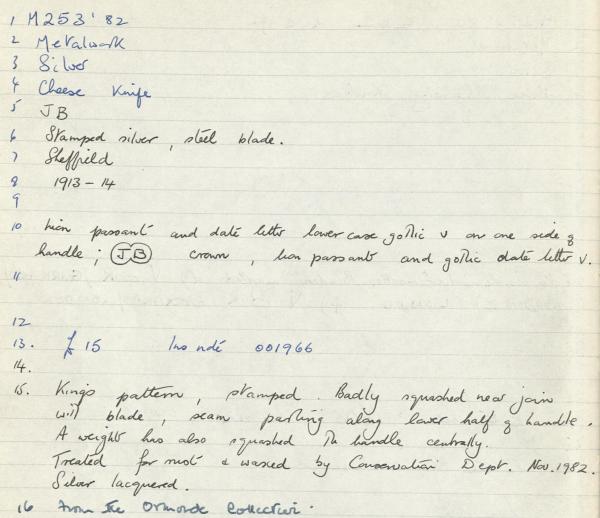 1 M253 '82
2 Metalwork
3 Silver
4 Cheese Knife
5 JB
6 Stamped silver, steel blade.
7 Sheffield
8 1913-14
9
10 Lion passant and date letter lower case gothic v on one side of
handle; JB crown, lion passant and gothic date letter v.
11
12
13. £15 Ins ndé 001966
14.
15. Kings pattern, stamped. Badly squashed near join
with blade, seam parting along lower half of handle.
A weight has also squashed the handle centrally.
Treated for rust & waxed by Conservation Dept. Nov. 1982.
Silver lacquered.
16 From the Ormonde Collection.